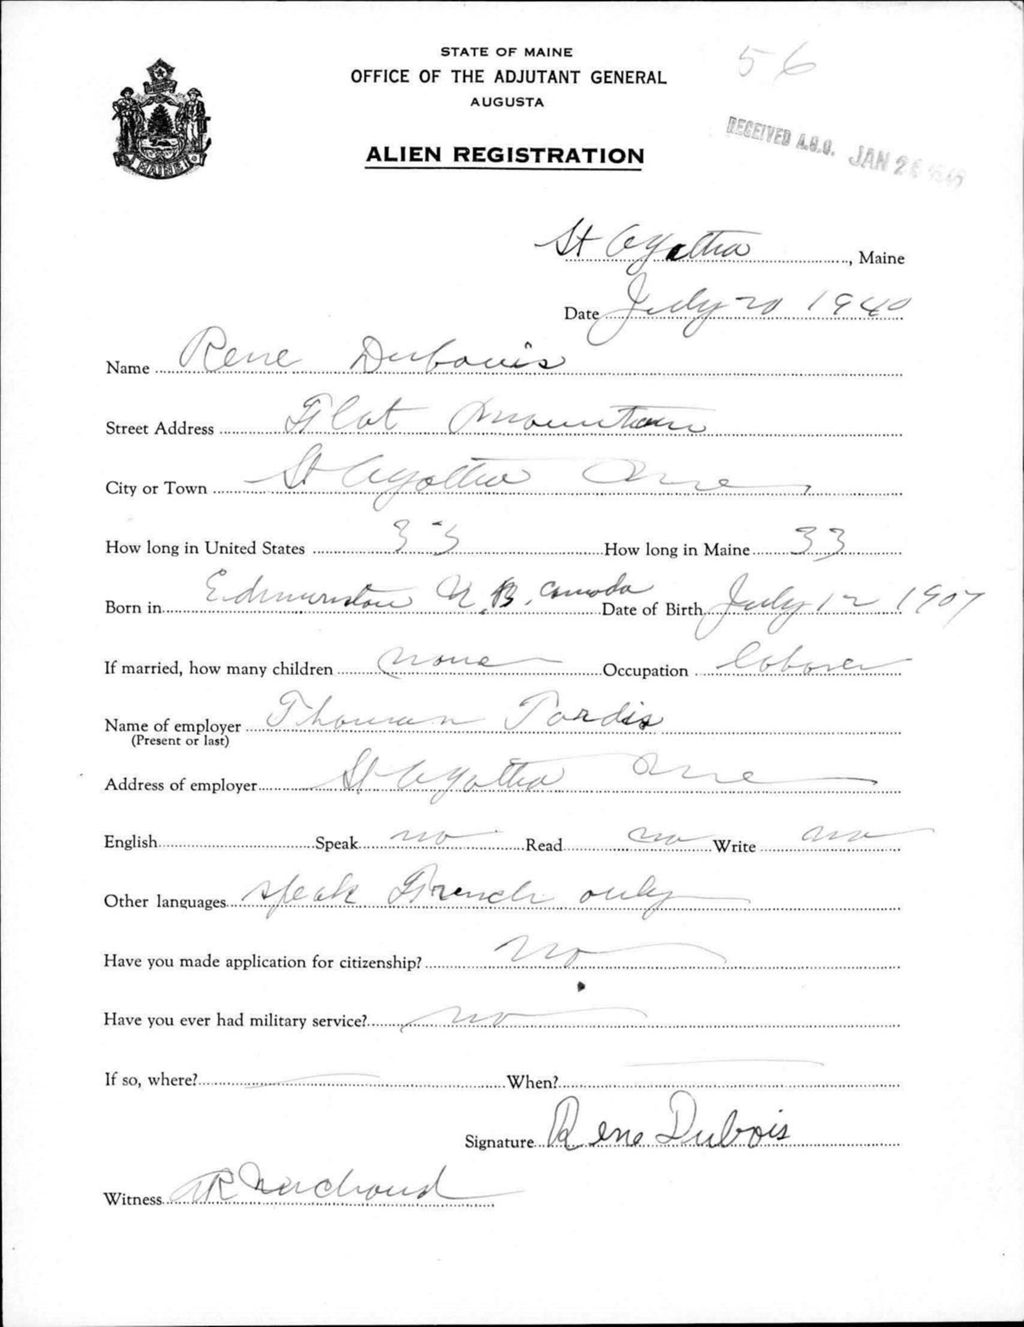 STATE OF MAINE
OFFICE OF THE ADJUTANT GENERAL
AUGUSTA
ALIEN REGISTRATION
56
RECEIVED A.G.O. JAN 2
MAINE
St Agatha, Maine
Date July 20 1940
Name Rene Dubouis
Street Address Flat Mountain
City or Town St Agatha Me
How long in United States 33 How long in Maine 33
Born in Edmunston N.B. Canada Date of Birth July 12 1907
If married, how many children none Occupation laborer
Name of employer
(Present or last)
Address of employer St Agatha Me
English Speak no Read no Write no
Other languages speak French only
Have you made application for citizenship? no
Have you ever had military service? no
If so, where? When?
Signature Rene Dubois
Witness